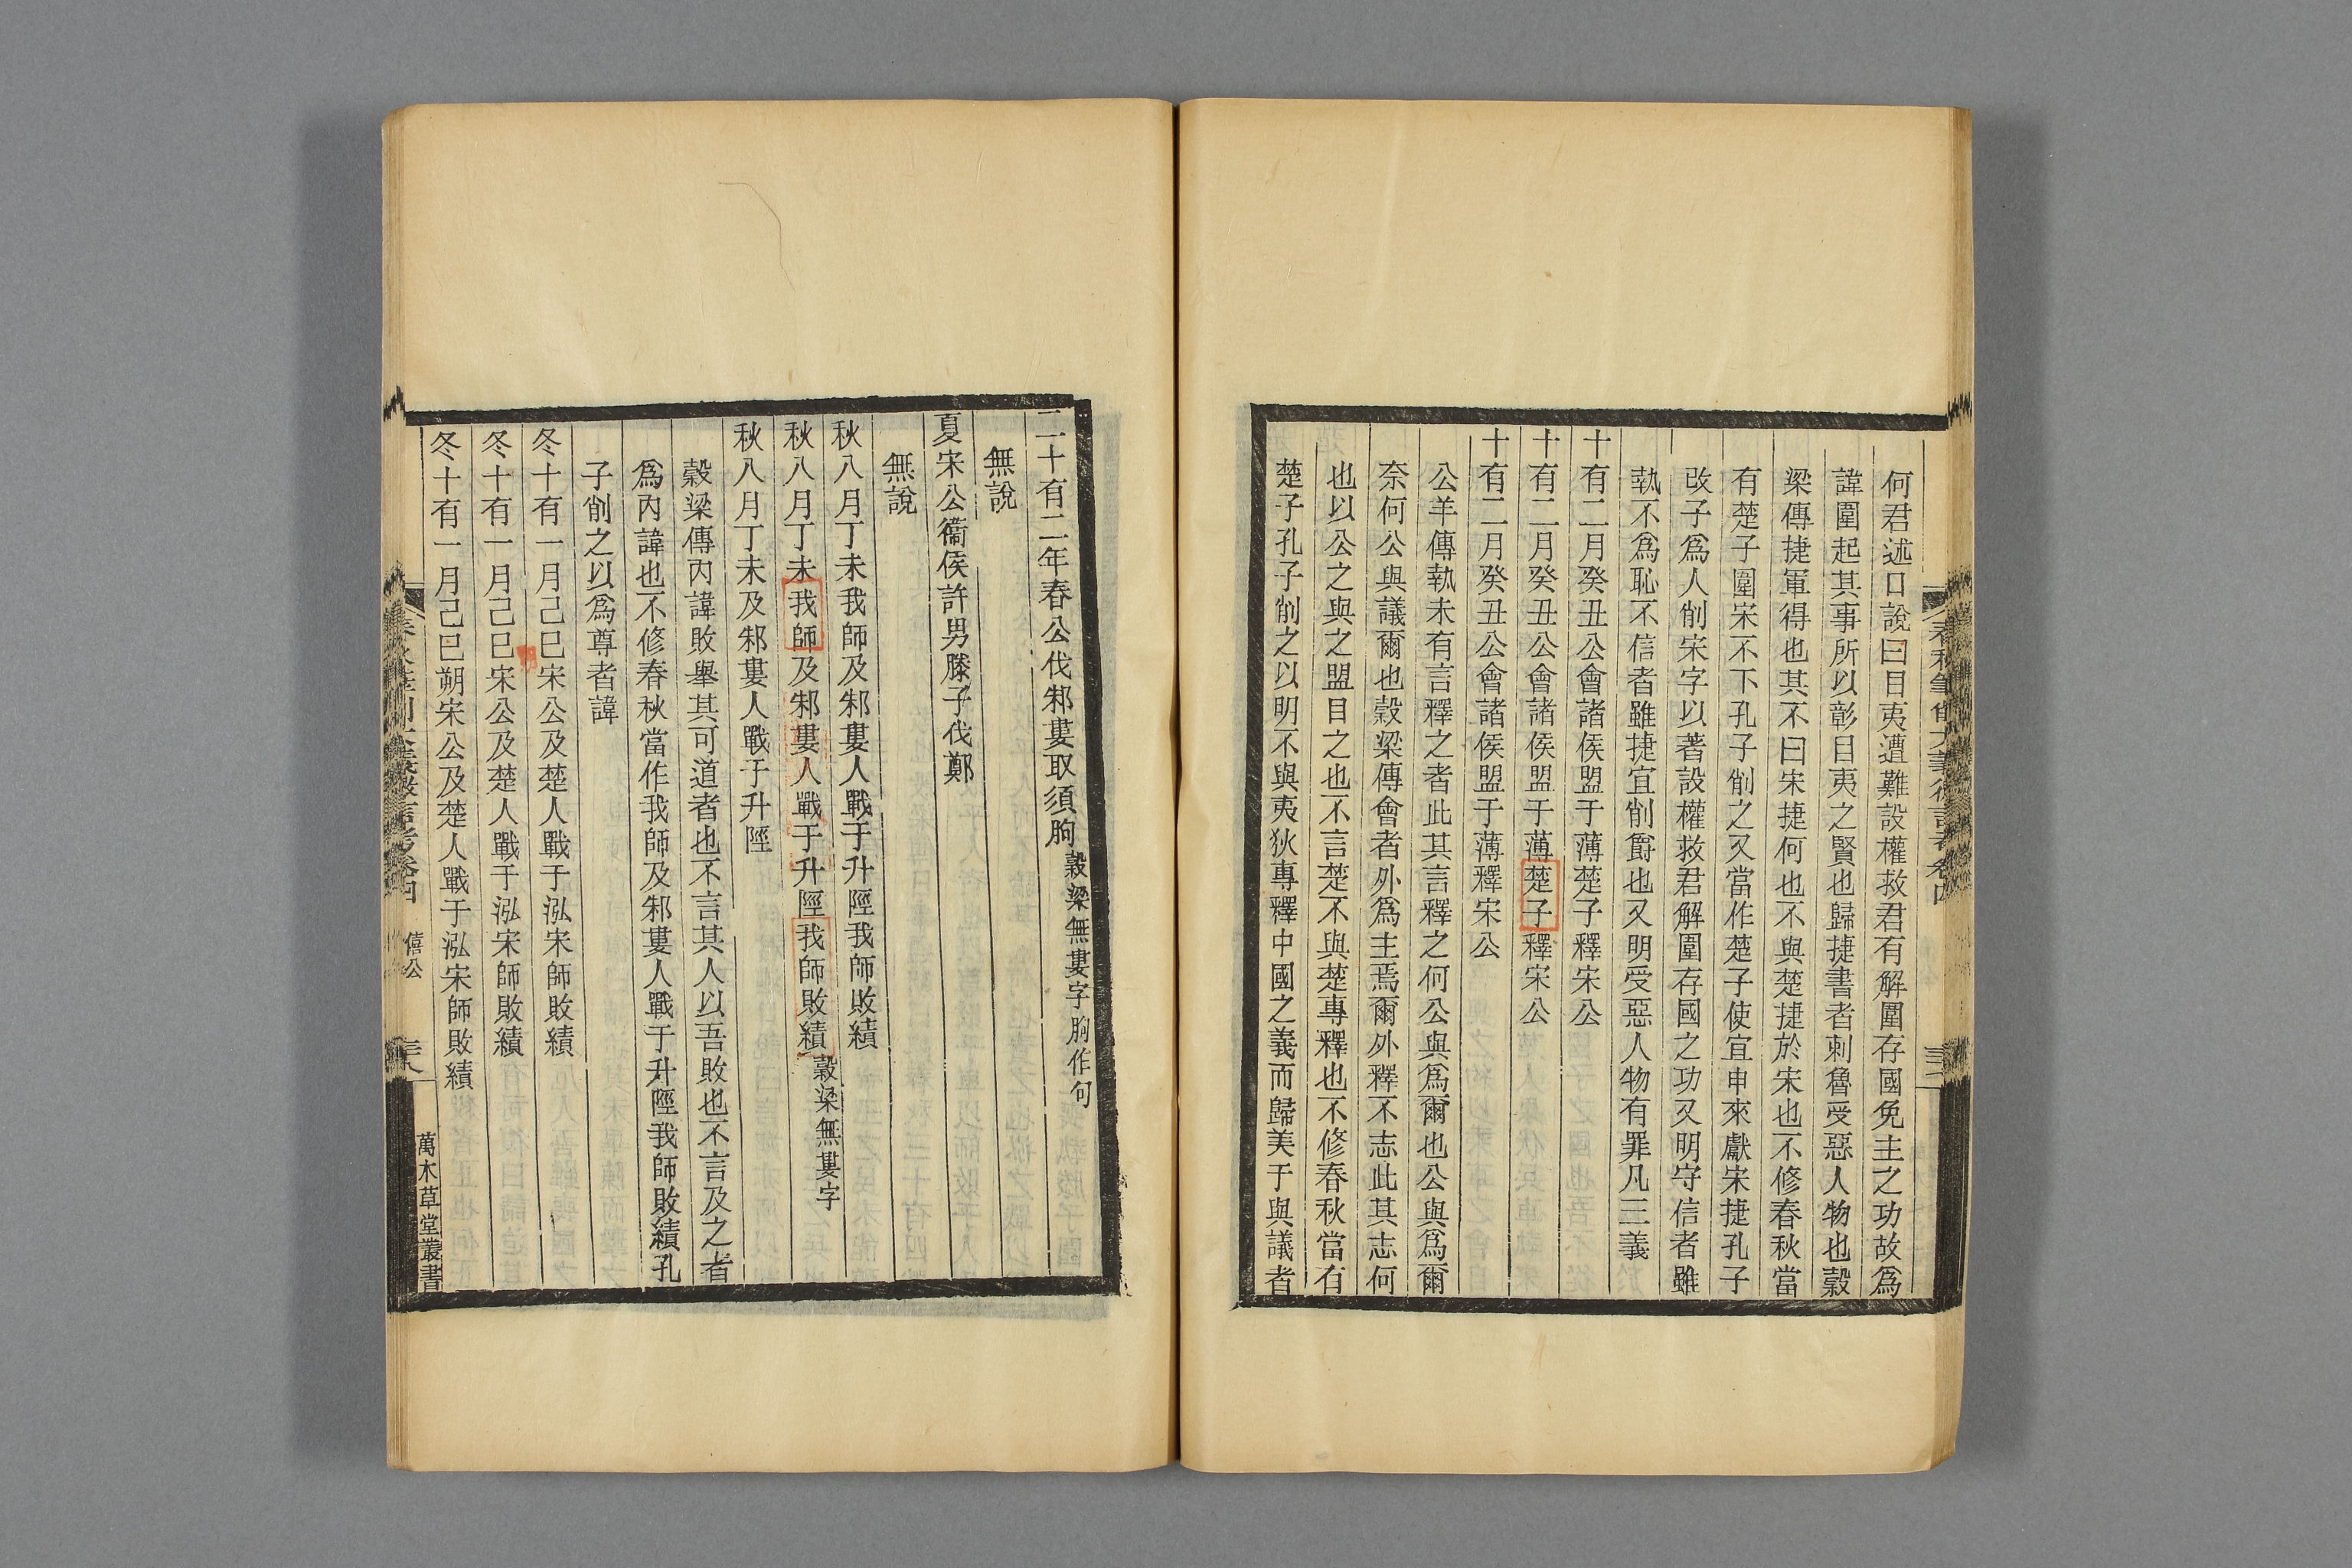 何君述口說曰目夷遭難設權救君有解圍存國免主之功故爲
諱圍起其事所以彰目夷之賢也歸捷書者刺魯受惡人物也穀
梁傳捷軍得也其不曰宋捷何也不與楚捷於宋也不修春秋當
有楚子圍宋不下孔子削之又當作楚子使宜申來獻宋捷孔子
改子爲人削宋字以著設權救君解圍存國之功又明守信者雖
執不爲恥不信者雖捷宜削爵也又明受惡人物有罪凡三義
十有二月癸丑公會諸侯盟于薄楚子釋宋公
十有二月癸丑公會諸侯盟于薄楚子釋宋公
十有二月癸丑公會諸侯盟于薄釋宋公
公羊傳執未有言釋之者此其言釋之何公與爲爾也公與爲爾
奈何公與議爾也穀梁傳會者外爲主焉爾外釋不志此其志何
也以公之與之盟目之也不言楚不與楚專釋也不修春秋當有
楚子孔子削之以明不與夷狄專釋中國之義而歸美于與議者
二十有二年春公伐邾婁取須朐穀梁無婁字朐作句
無說
夏宋公衞侯許男滕子伐鄭
無說
秋八月丁未我師及邾婁人戰于升陘我師敗績
秋八月丁未我師及邾婁人戰于升陘我師敗績穀梁無婁字
秋八月丁未及邾婁人戰于升陘
穀梁傳內諱敗舉其可道者也不言其人以吾敗也不言及之者
爲內諱也不修春秋當作我師及邾婁人戰于升陘我師敗績孔
子削之以爲尊者諱
冬十有一月己巳宋公及楚人戰于泓宋師敗績
冬十有一月己巳宋公及楚人戰于泓宋師敗績
冬十有一月己巳朔宋公及楚人戰于泓宋師敗績
僖公
萬木草堂叢書